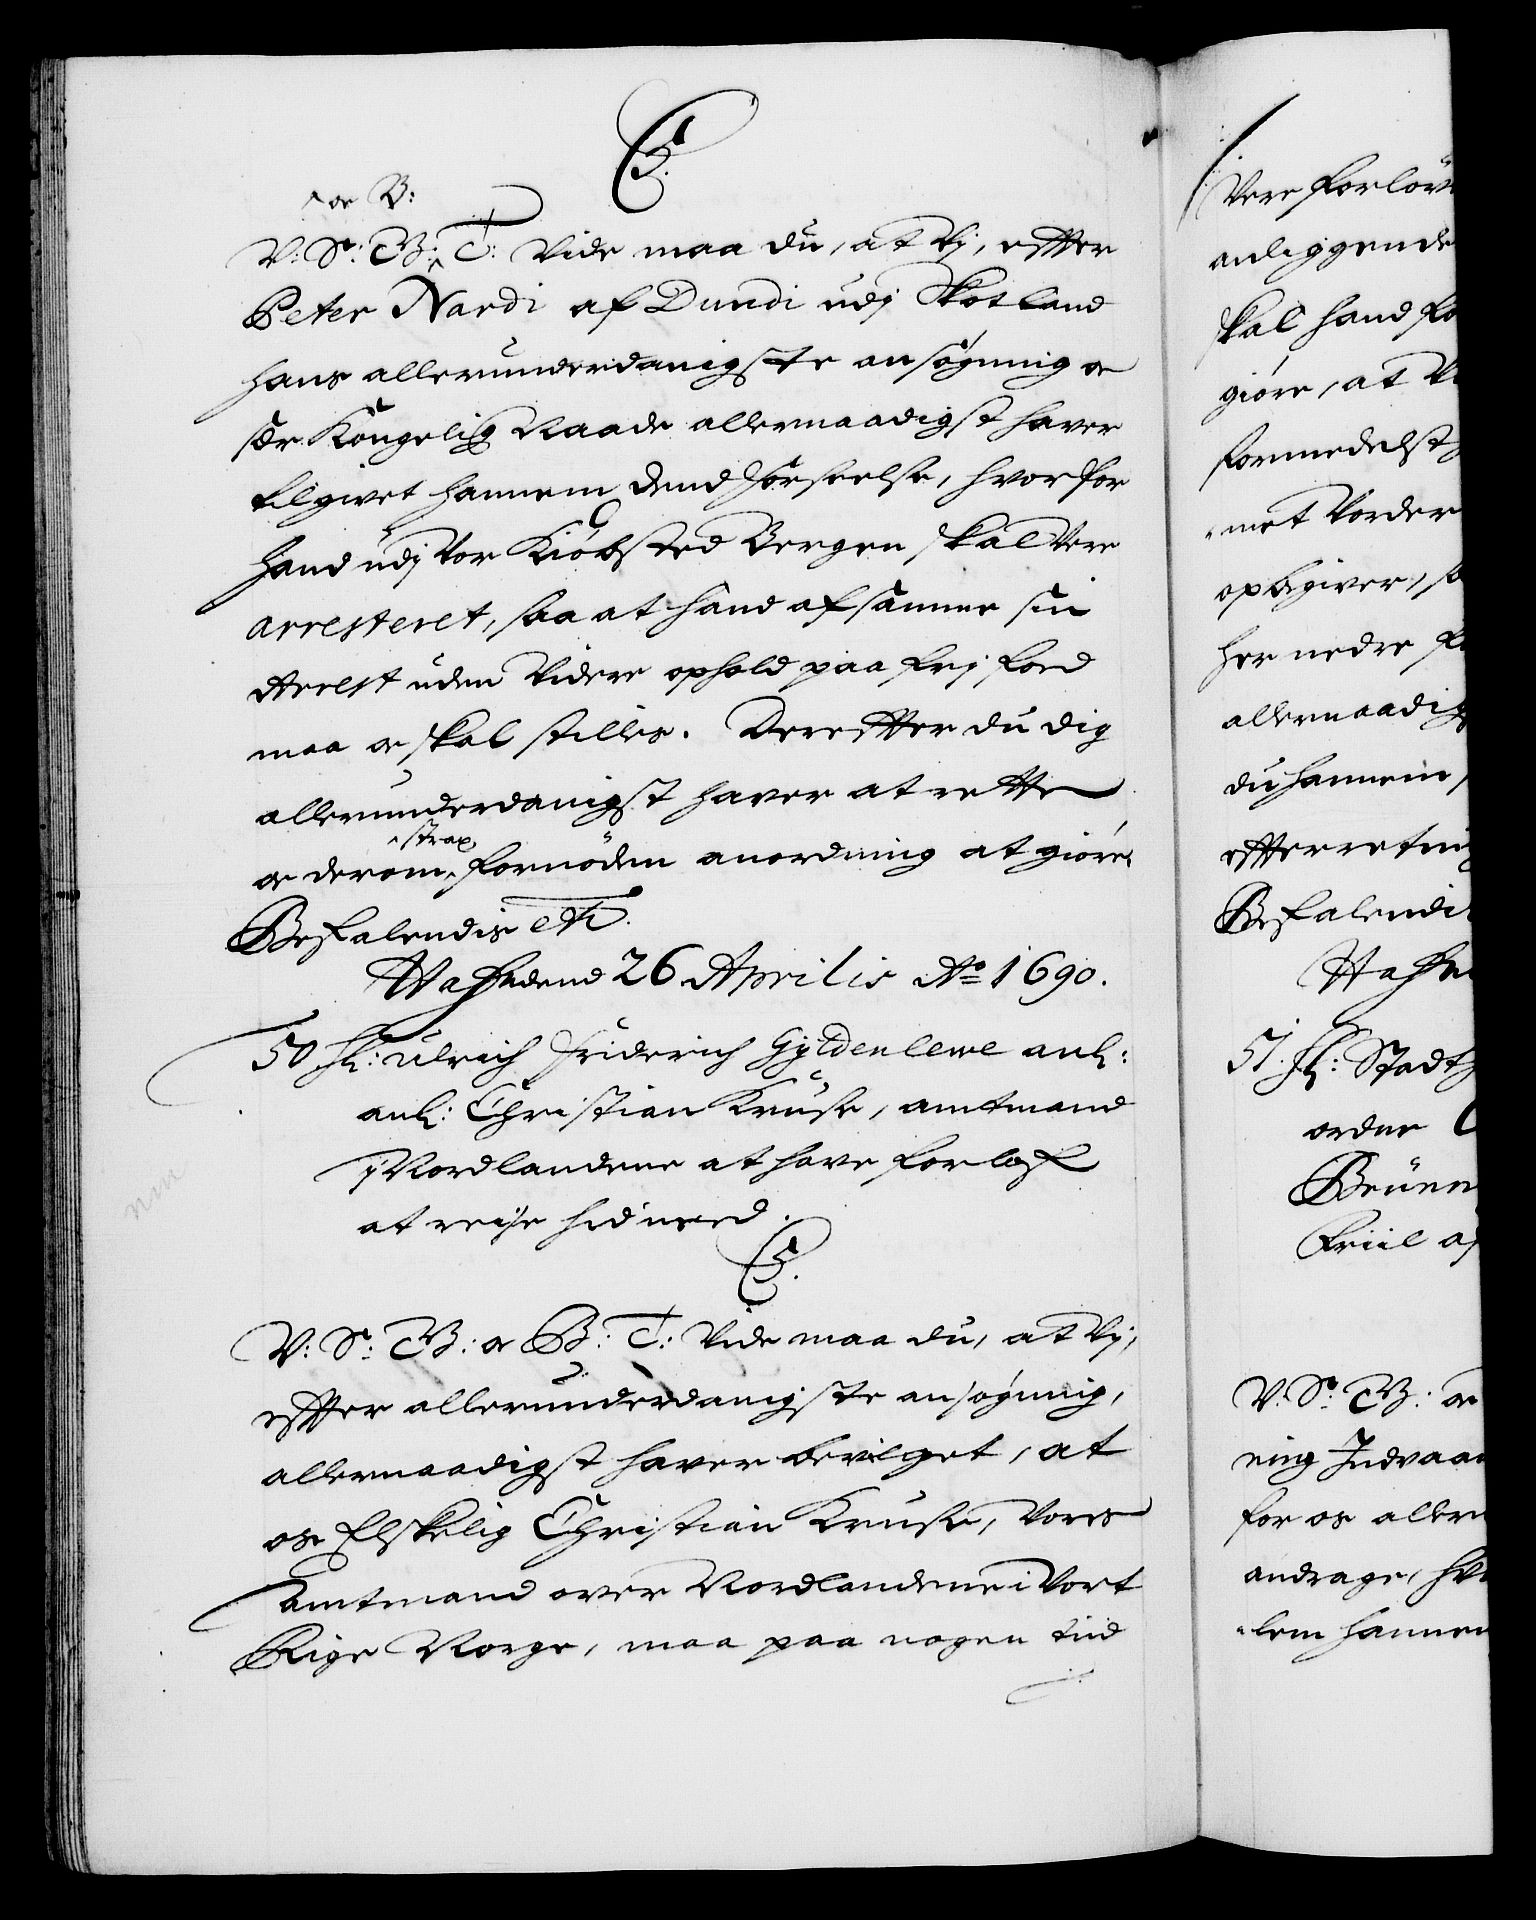 C5.
^ oc B:
V: Sr: G: ^ T: Vide maa du, at Vj, effter
Peter Nardi af Dundi udj Skotland
hans allerunderdanigste ansögning oc
sær Kongelig Naade allernaadigst haver
tilgivet hannem dend forseelse, hvorfor
hand udj Vor Kiöbsted Bergen skal Vere
arresteret, saa at hand af samme sin
Arrest uden Videre ophold paa frj fod
maa oc skal stilles. Dereffter du dig
allerunderdanigst haver at rette
^ strax
oc derom ^ fornöden anordning at giöre.
Befalendis etc.
Haffn dend 26 Aprilis Ao 1690.
50 H: Ulrich Friderich Gyldenlewe anl:
anl: Christian Kruse, amtmand
j Nordlandene at have forlof
at reise hid need.
C5.
V: Sr: G: oc B: T: Vide maa du, at Vj,
effter allerunderdanigste ansögning,
allernaadigst haver bevilget, at
os Elskelig Christian Kruse, Vores
Amtmand over Nordlandene i Vort
Rige Norge, maa paa nogen tiid
Vere forlöv
anliggende
skal hand fo
giöre, at V
formedelst
met Vorder
opbgiver, sa
her nedre f
allernaadig
du hannem,
effterretning
Befalendi
Haffn
51. H: Stadth
ordne
Brúnn
friil af
V: Sr: G: oc
ning Indvaan
for os allern
andrage, hv
lem hannem